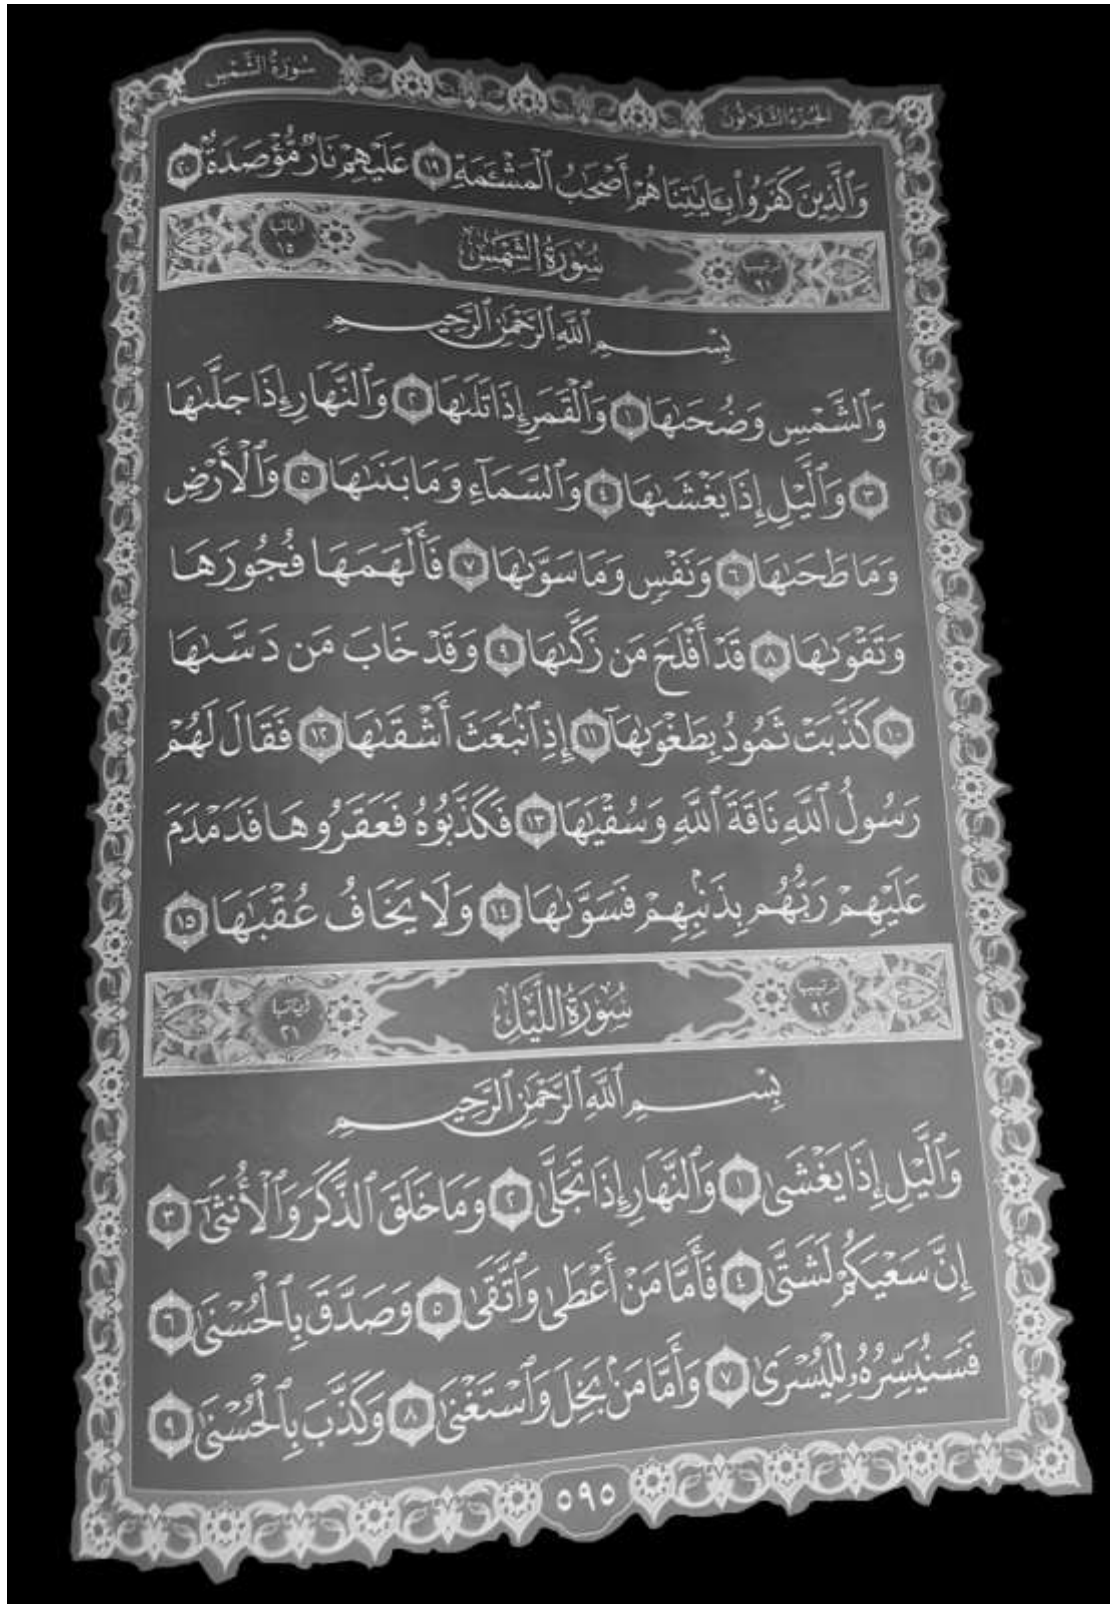 سورة الشمس
الجزء الثلاثون
وَٱلَّذِينَ كَفَرُوا۟ بِـَٔايَـٰتِنَا هُمْ أَصْحَـٰبُ ٱلْمَشْـَٔمَةِ ١٩ عَلَيْهِمْ نَارٌ مُّؤْصَدَةٌۢ ٢٠
ترتيبها ٩١ سُورَةُ الشَّمْسِ آياتها ١٥
بِسْمِ ٱللَّهِ ٱلرَّحْمَـٰنِ ٱلرَّحِيمِ
وَٱلشَّمْسِ وَضُحَىٰهَا ١ وَٱلْقَمَرِ إِذَا تَلَىٰهَا ٢ وَٱلنَّهَارِ إِذَا جَلَّىٰهَا
٣ وَٱلَّيْلِ إِذَا يَغْشَىٰهَا ٤ وَٱلسَّمَآءِ وَمَا بَنَىٰهَا ٥ وَٱلْأَرْضِ
وَمَا طَحَىٰهَا ٦ وَنَفْسٍ وَمَا سَوَّىٰهَا ٧ فَأَلْهَمَهَا فُجُورَهَا
وَتَقْوَىٰهَا ٨ قَدْ أَفْلَحَ مَن زَكَّىٰهَا ٩ وَقَدْ خَابَ مَن دَسَّىٰهَا
١٠ كَذَّبَتْ ثَمُودُ بِطَغْوَىٰهَآ ١١ إِذِ ٱنۢبَعَثَ أَشْقَىٰهَا ١٢ فَقَالَ لَهُمْ
رَسُولُ ٱللَّهِ نَاقَةَ ٱللَّهِ وَسُقْيَـٰهَا ١٣ فَكَذَّبُوهُ فَعَقَرُوهَا فَدَمْدَمَ
عَلَيْهِمْ رَبُّهُم بِذَنۢبِهِمْ فَسَوَّىٰهَا ١٤ وَلَا يَخَافُ عُقْبَـٰهَا ١٥
ترتيبها ٩٢ سُورَةُ اللَّيْلِ آياتها ٢١
بِسْمِ ٱللَّهِ ٱلرَّحْمَـٰنِ ٱلرَّحِيمِ
وَٱلَّيْلِ إِذَا يَغْشَىٰ ١ وَٱلنَّهَارِ إِذَا تَجَلَّىٰ ٢ وَمَا خَلَقَ ٱلذَّكَرَ وَٱلْأُنثَىٰٓ ٣
إِنَّ سَعْيَكُمْ لَشَتَّىٰ ٤ فَأَمَّا مَنْ أَعْطَىٰ وَٱتَّقَىٰ ٥ وَصَدَّقَ بِٱلْحُسْنَىٰ ٦
فَسَنُيَسِّرُهُۥ لِلْيُسْرَىٰ ٧ وَأَمَّا مَنۢ بَخِلَ وَٱسْتَغْنَىٰ ٨ وَكَذَّبَ بِٱلْحُسْنَىٰ ٩
٥٩٥